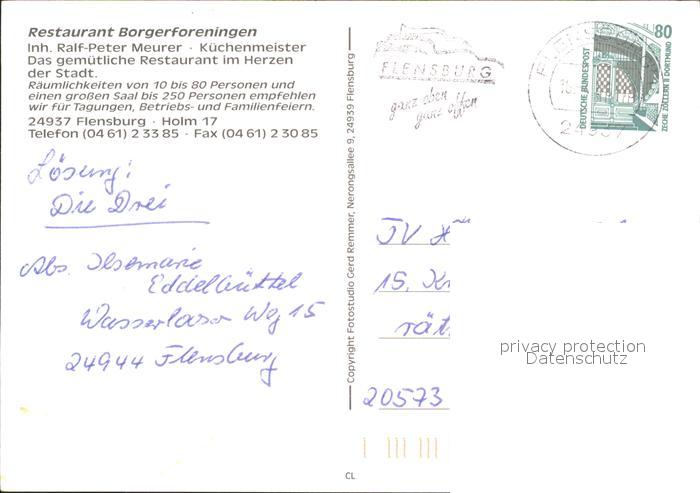 Restaurant Borgerforeningen
Inh. Ralf-Peter Meurer · Küchenmeister
Das gemütliche Restaurant im Herzen
der Stadt.
Räumlichkeiten von 10 bis 80 Personen und
einen großen Saal bis 250 Personen empfehlen
wir für Tagungen, Betriebs- und Familienfeiern.
24937 Flensburg · Holm 17
Telefon (04 61) 2 33 85 · Fax (04 61) 2 30 85
Lösung:
Die Drei
Abs. Ilsemarie
Eddelbüttel
Wasserlooser Weg 15
24944 Flensburg
Copyright Fotostudio Gerd Remmer, Nerongsallee 9, 24939 Flensburg
CL
FLENSBURG
ganz oben
ganz offen
80
DEUTSCHE BUNDESPOST
ZECHE ZOLLERN II DORTMUND
TV
15.
rät
20573
privacy protection
Datenschutz